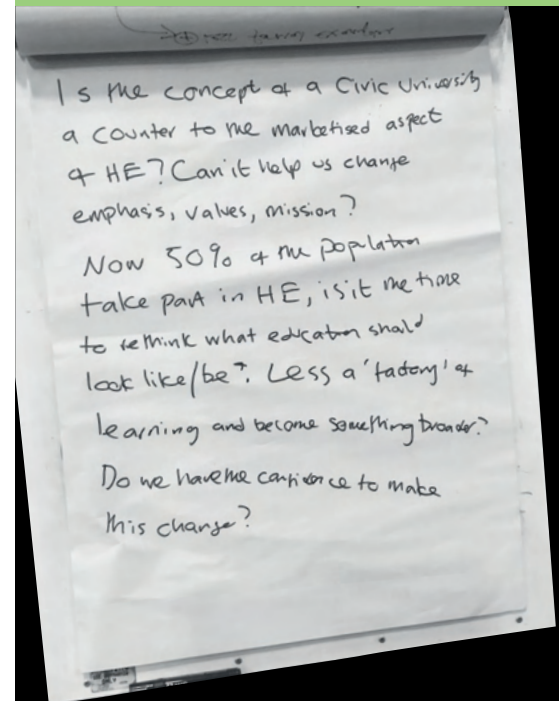 taking
Is the concept of a Civic University
a counter to the marketised aspect
of HE? Can it help us change
emphasis, values, mission?
Now 50% of the population
take part in HE, is it the time
to rethink what education should
look like/be? Less a 'factory' of
learning and become something broader?
Do we have the confidence to make
this change?